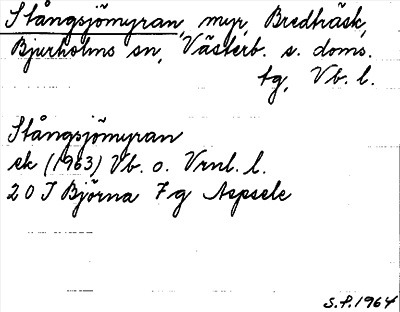 Stångsjömyran, myr, Bredträsk,
Bjurholms sn, Västerb. s. doms.
tg, Vb. l.
Stångsjömyran
ek (1963) Vb. o. Vrnl. l.
20 J Björna 7g Aspsele
S.P. 1964